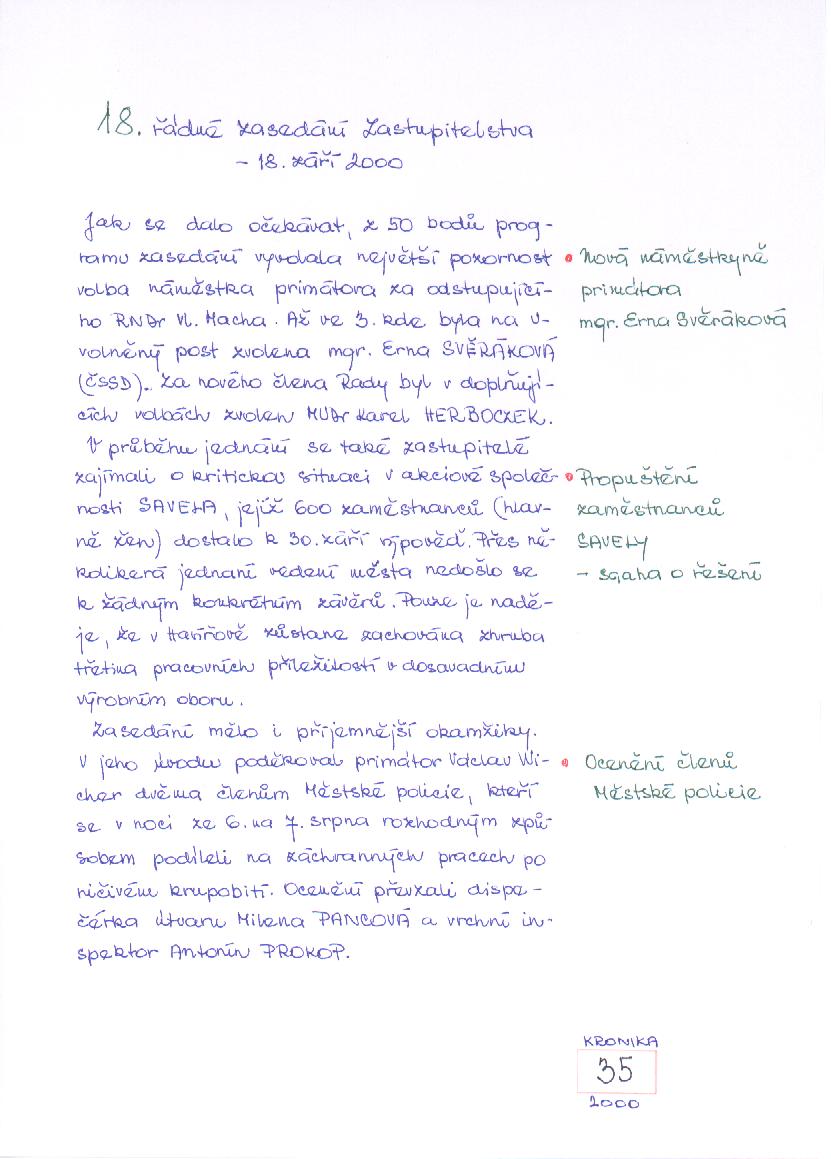 18. řádné zasedání Zastupitelstva
– 18. září 2000
Jak se dalo očekávat, z 50 bodů prog-
ramu zasedání vyvolala největší pozornost
volba náměstka primátora za odstupující-
ho RNDr Vl. Macha. Až ve 3. kole byla na u-
volněný post zvolena mgr. Erna SVĚRÁKOVÁ
(ČSSD). Za nového člena Rady byl v doplňují-
cích volbách zvolen MUDr Karel HERBOCZEK.
V průběhu jednání se také zastupitelé
zajímali o kritickou situaci v akciové společ-
nosti SAVELA, jejíž 600 zaměstnanců (hlav-
ně žen) dostalo k 30. září výpověď. Přes ně-
kolikerá jednání vedení města nedošlo se
k žádným konkrétním závěrů. Pouze je nadě-
je, že v Havířově zůstane zachována zhruba
třetina pracovních příležitostí v dosavadním
výrobním oboru.
Zasedání mělo i příjemnější okamžiky.
V jeho úvodu poděkoval primátor Václav Wi-
cher dvěma členům Městské policie, kteří
se v noci ze 6. na 7. srpna rozhodným způ-
sobem podíleli na záchranných pracech po
ničivém krupobití. Ocenění převzali dispe-
čérka útvaru Milena PANCOVÁ a vrchní in-
spektor Antonín PROKOP.
• Nová náměstkyně
primátora
mgr. Erna Svěráková
• Propuštění
zaměstnanců
SAVELY
– snaha o řešení
• Ocenění členů
Městské policie
KRONIKA
35
2000